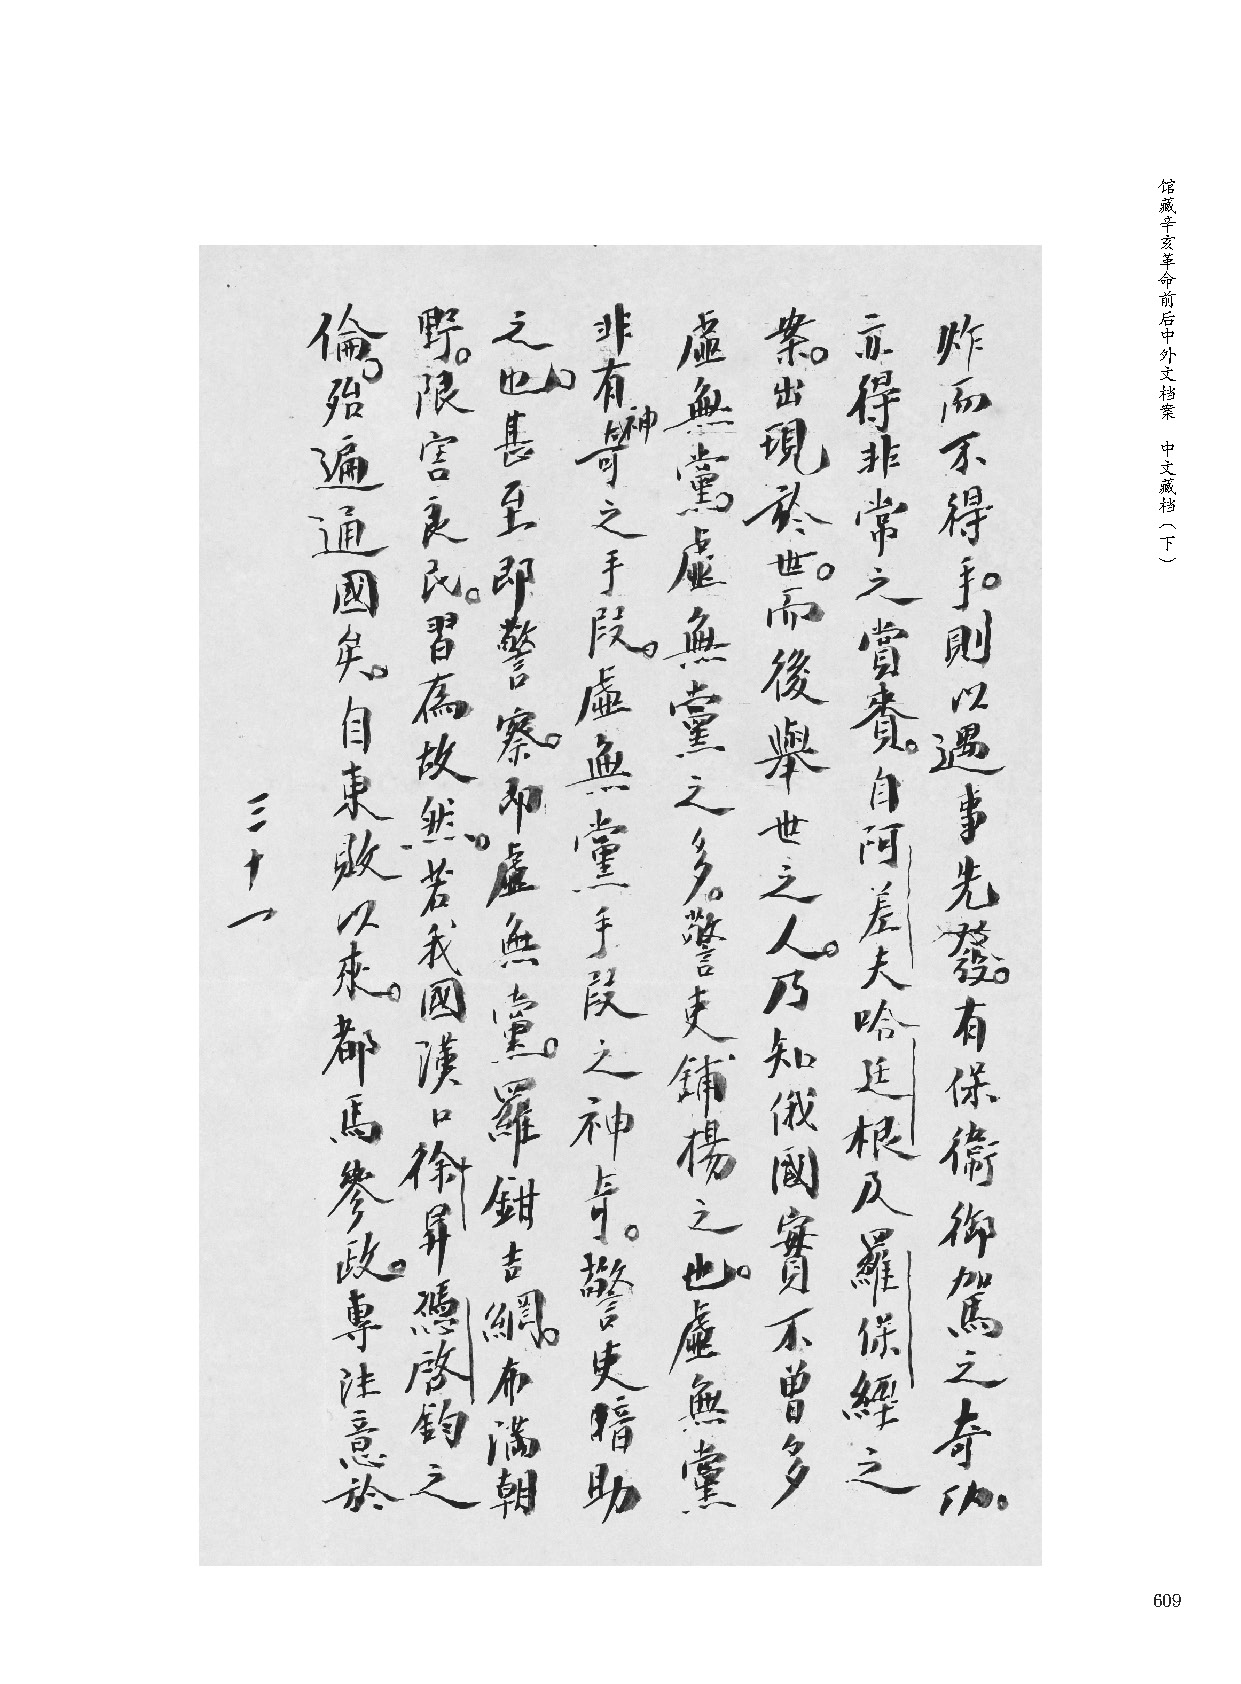 馆藏辛亥革命前后中外文档案 中文藏档（下）
炸而不得手。則以遇事先發。有保衞御駕之奇功。
亦得非常之賞賚。自阿差夫哈廷根及羅保經之
案。出現於世。而後舉世之人。乃知俄國實不曾多
虛無黨。虛無黨之多。警吏鋪楊之也。虛無黨
非有神奇之手段。虛無黨手段之神奇。警吏暗助
之也。甚至即警察。即虛無黨。羅鉗吉網。布滿朝
野。限害良民。習為故然。若我國漢口徐昇馮啓鈞之
倫。殆遍通國矣。自東敗以來。都馬參政。專注意於
三十一
609